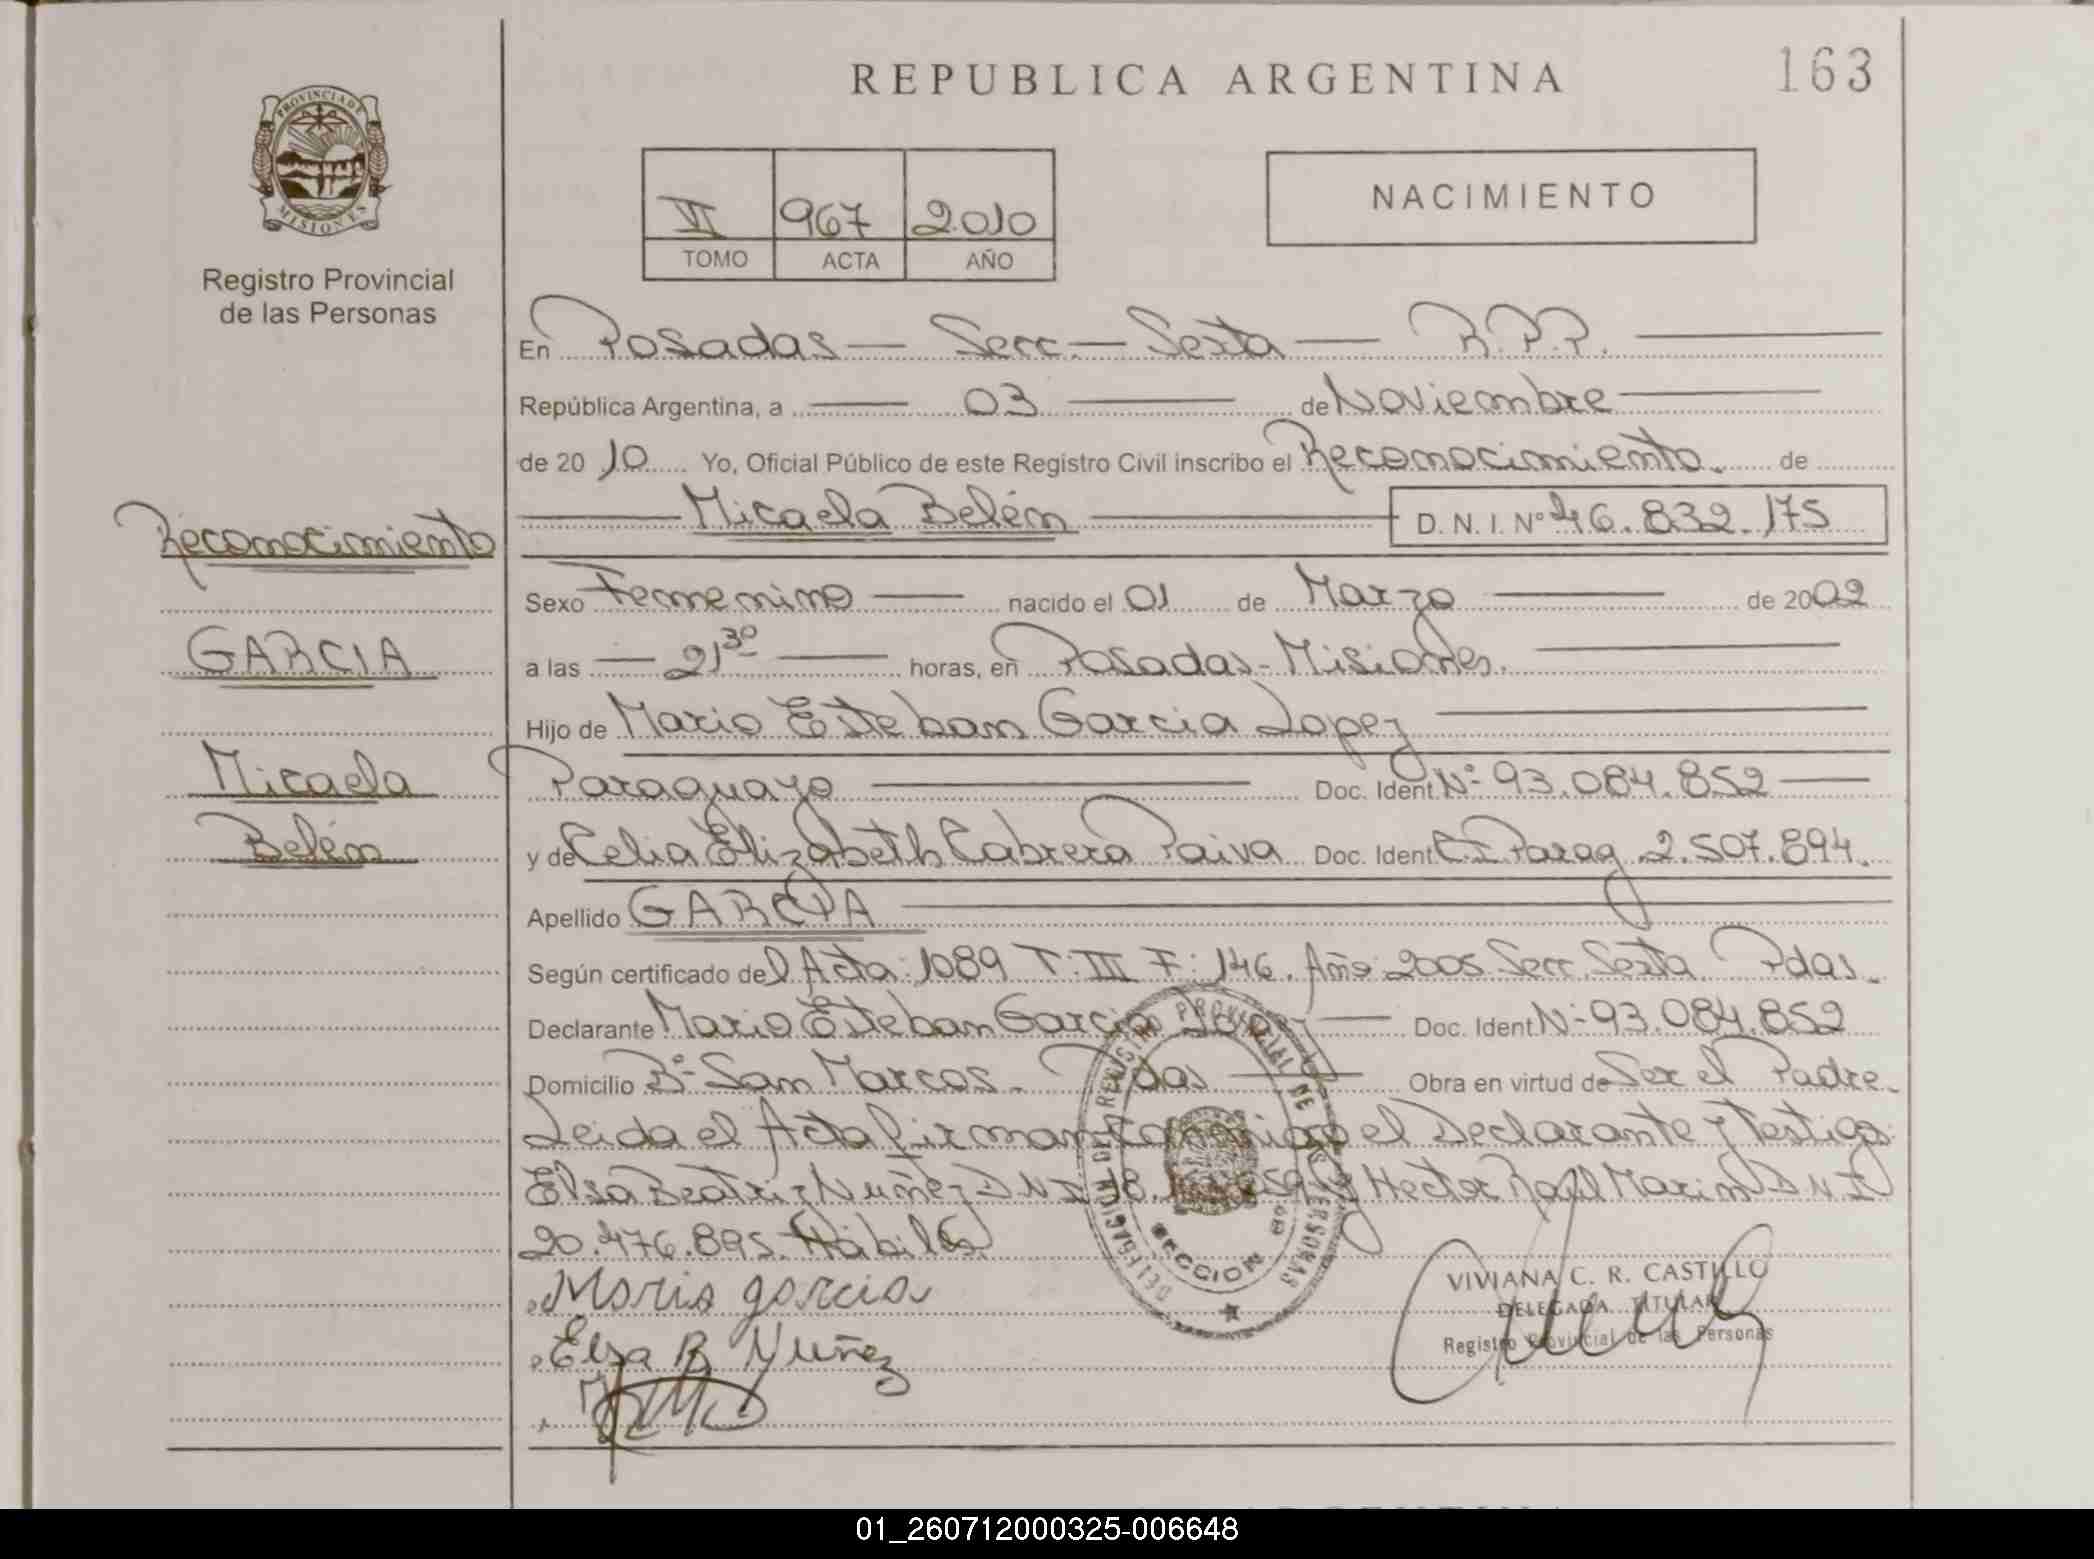 REPUBLICA ARGENTINA
163
PROVINCIA DE
MISIONES
Registro Provincial
de las Personas
VI 967 2010
TOMO ACTA AÑO
NACIMIENTO
En Posadas — Secc. — Sexta — R.P.P.
República Argentina, a 03 de Noviembre
de 20 10 Yo, Oficial Público de este Registro Civil inscribo el Reconocimiento de
Micaela Belén D. N. I. N° 46.832.175
Reconocimiento
Sexo Femenino nacido el 01 de Marzo de 2002
GARCIA
a las 21 30 horas, en Posadas - Misiones.
Hijo de Mario Esteban Garcia Lopez
Micaela
Paraguayo Doc. Ident. N° 93.084.852
Belén
y de Celia Elizabeth Cabrera Paiva Doc. Ident. C.I Parag 2.507.894.
Apellido GARCIA
Según certificado del Acta: 1089 T: III F: 146. Año: 2005 Secc. Sexta Pdas.
Declarante Mario Esteban Garcia Lopez Doc. Ident. N° 93.084.852
Domicilio B° San Marcos. Pdas Obra en virtud de Ser el Padre.
Leida el Acta firman conmigo el Declarante y Testigos
Elsa Beatriz Nuñez D N I 18. y Hector Raul Marin D N I
20.476.895. Hábiles
DELEGACION DEL REGISTRO PROVINCIAL DE LAS PERSONAS
SECCION 6°
Mario garcia
Elsa B. Nuñez
VIVIANA C. R. CASTILLO
DELEGADA TITULAR
Registro Provincial de las Personas
01_260712000325-006648